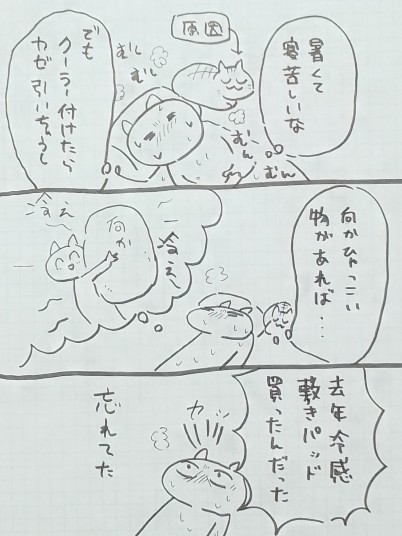 暑くて
寝苦しいな
原因
むし
むし
むん
むん
でも
クーラー付けたら
カゼ引いちゃうし
何かひゃっこい
物があれば・・・
冷え〜
何か
冷え
去年冷感
敷きパッド
買ったんだった
カッ
忘れてた